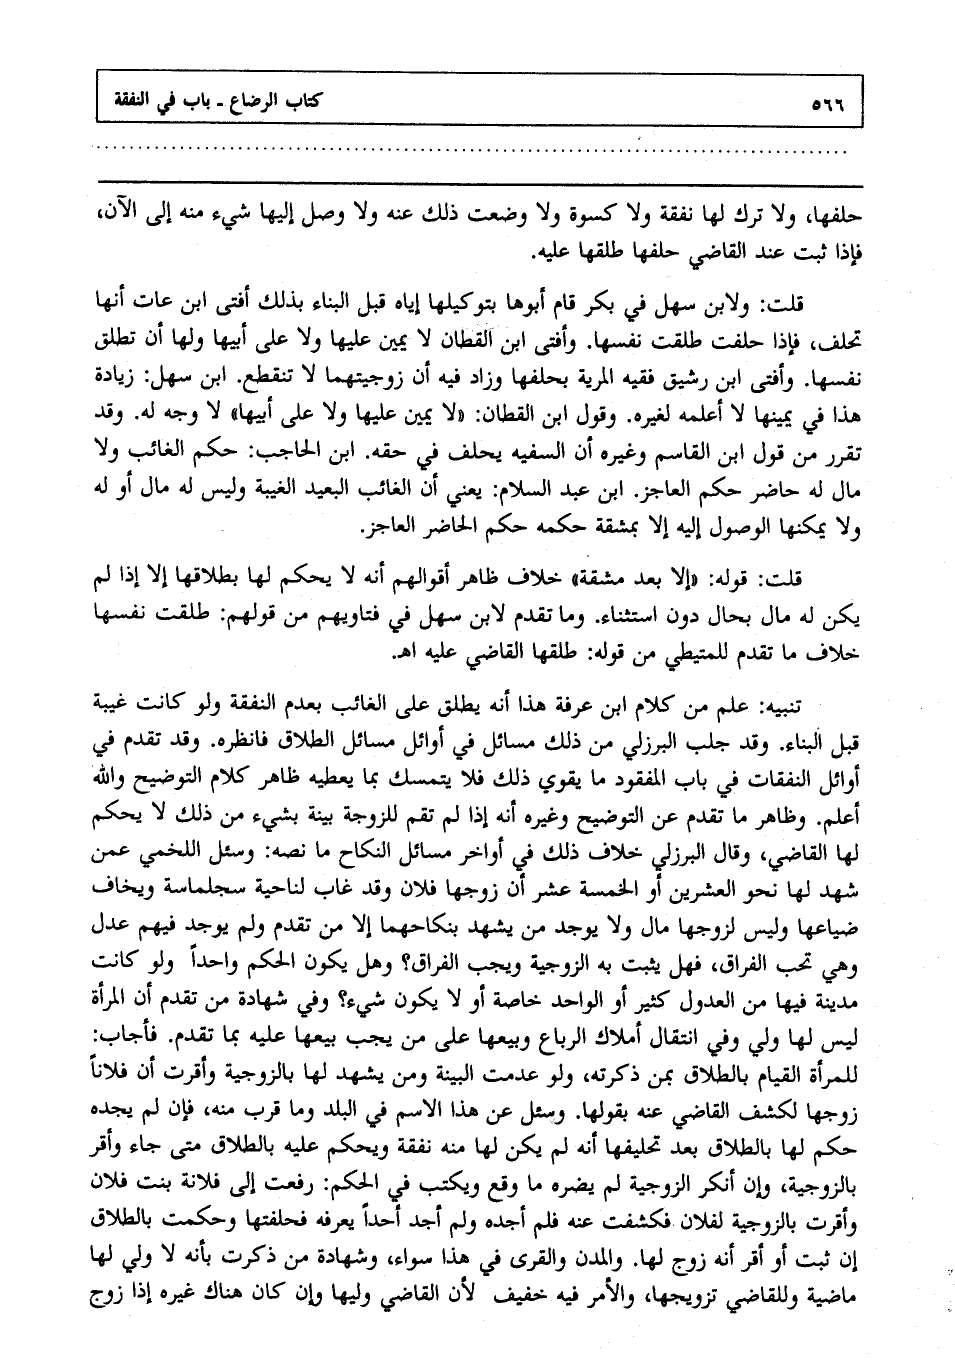 ٥٦٦ كتاب الرضاع ـ باب في النفقة
حلفها، ولا ترك لها نفقة ولا كسوة ولا وضعت ذلك عنه ولا وصل إليها شيء منه إلى الآن،
فإذا ثبت عند القاضي حلفها طلقها عليه.
قلت: ولابن سهل في بكر قام أبوها بتوكيلها إياه قبل البناء بذلك أفتى ابن عات أنها
تحلف، فإذا حلفت طلقت نفسها. وأفتى ابن القطان لا يمين عليها ولا على أبيها ولها أن تطلق
نفسها. وأفتى ابن رشيق فقيه المرية بحلفها وزاد فيه أن زوجيتهما لا تنقطع. ابن سهل: زيادة
هذا في يمينها لا أعلمه لغيره. وقول ابن القطان: «لا يمين عليها ولا على أبيها» لا وجه له. وقد
تقرر من قول ابن القاسم وغيره أن السفيه يحلف في حقه. ابن الحاجب: حكم الغائب ولا
مال له حاضر حكم العاجز. ابن عبد السلام: يعني أن الغائب البعيد الغيبة وليس له مال أو له
ولا يمكنها الوصول إليه إلا بمشقة حكمه حكم الحاضر العاجز.
قلت: قوله: «إلا بعد مشقة» خلاف ظاهر أقوالهم أنه لا يحكم لها بطلاقها إلا إذا لم
يكن له مال بحال دون استثناء. وما تقدم لابن سهل في فتاويهم من قولهم: طلقت نفسها
خلاف ما تقدم للمتيطي من قوله: طلقها القاضي عليه اهـ.
تنبيه: علم من كلام ابن عرفة هذا أنه يطلق على الغائب بعدم النفقة ولو كانت غيبة
قبل البناء. وقد جلب البرزلي من ذلك مسائل في أوائل مسائل الطلاق فانظره. وقد تقدم في
أوائل النفقات في باب المفقود ما يقوي ذلك فلا يتمسك بما يعطيه ظاهر كلام التوضيح والله
أعلم. وظاهر ما تقدم عن التوضيح وغيره أنه إذا لم تقم للزوجة بينة بشيء من ذلك لا يحكم
لها القاضي، وقال البرزلي خلاف ذلك في أواخر مسائل النكاح ما نصه: وسئل اللخمي عمن
شهد لها نحو العشرين أو الخمسة عشر أن زوجها فلان وقد غاب لناحية سجلماسة ويخاف
ضياعها وليس لزوجها مال ولا يوجد من يشهد بنكاحهما إلا من تقدم ولم يوجد فيهم عدل
وهي تحب الفراق، فهل يثبت به الزوجية ويجب الفراق؟ وهل يكون الحكم واحداً ولو كانت
مدينة فيها من العدول كثير أو الواحد خاصة أو لا يكون شيء؟ وفي شهادة من تقدم أن المرأة
ليس لها ولي وفي انتقال أملاك الرباع وبيعها على من يجب بيعها عليه بما تقدم. فأجاب:
للمرأة القيام بالطلاق بمن ذكرته، ولو عدمت البينة ومن يشهد لها بالزوجية وأقرت أن فلاناً
زوجها لكشف القاضي عنه بقولها. وسئل عن هذا الاسم في البلد وما قرب منه، فإن لم يجده
حكم لها بالطلاق بعد تحليفها أنه لم يكن لها منه نفقة ويحكم عليه بالطلاق متى جاء وأقر
بالزوجية، وإن أنكر الزوجية لم يضره ما وقع ويكتب في الحكم: رفعت إلى فلانة بنت فلان
وأقرت بالزوجية لفلان فكشفت عنه فلم أجده ولم أجد أحداً يعرفه فحلفتها وحكمت بالطلاق
إن ثبت أو أقر أنه زوج لها. والمدن والقرى في هذا سواء، وشهادة من ذكرت بأنه لا ولي لها
ماضية وللقاضي تزويجها، والأمر فيه خفيف لأن القاضي وليها وإن كان هناك غيره إذا زوج